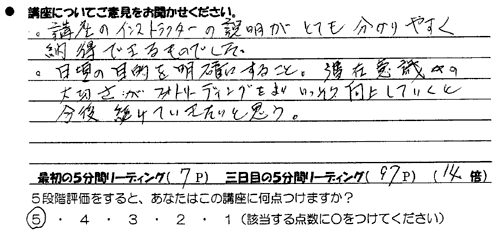 ● 講座についてご意見をお聞かせください。
。講座のインストラクターの説明がとても分かりやすく
納得できるものでした。
。日頃の目的を明確にすること。潜在意識への
大切さがフォトリーディングをより向上していくと
今後続けていきたいと思う。
最初の5分間リーディング( 7 P) 三日目の5分間リーディング( 97 P) ( 14 倍)
5段階評価をすると、あなたはこの講座に何点つけますか?
5 ・ 4 ・ 3 ・ 2 ・ 1 (該当する点数に○をつけてください)